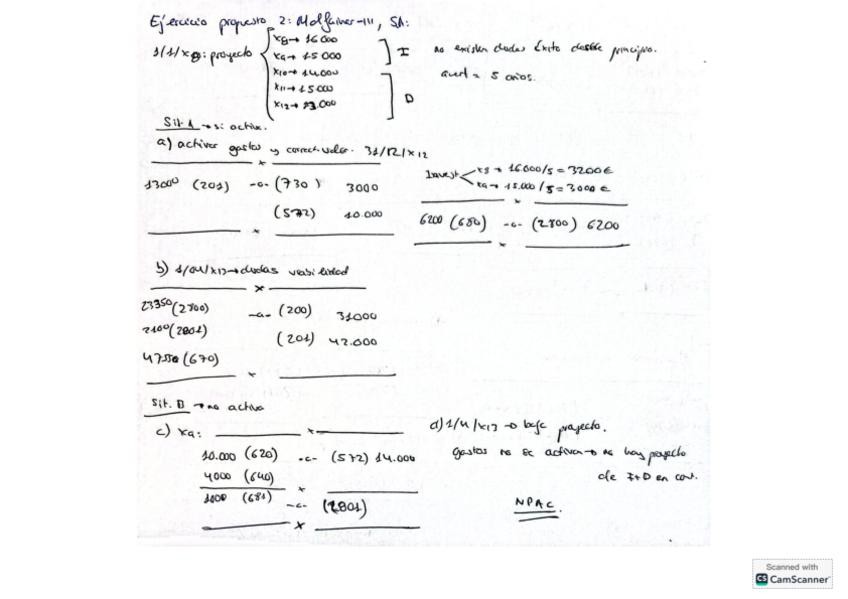 Ejercicio propuesto 2: Molfainer-III, SA:
1/1/x8: proyecto
x8→ 16000
x9→ 15000
x10→ 14.000
x11→ 15000
x12→ 13.000
I
D
no existen dudas éxito desde principio.
5 años.
Sit. A → si activa.
a) activar gastos y 31/12/x12
x
13000 (201) -a- (730) 3000
(572) 10.000
x
Invest
x8 → 16.000/5 = 3200€
x9 → 15.000/5 = 3000€
x
6200 (680) -a- (2800) 6200
x
b) 1/04/x13→dudas viabilidad
x
23350 (2800) -a- (200) 31000
2100 (2801) (201) 42.000
47550 (670)
x
Sit. B → no activa
c) x9:
x
10.000 (620) -a- (572) 14.000
4000 (640)
x
(681) -a- (2801)
x
d) 1/4/x13 → baja proyecto.
gastos no se activa→ no hay proyecto
de I+D en cont.
NPAC.
Scanned with
CS CamScanner